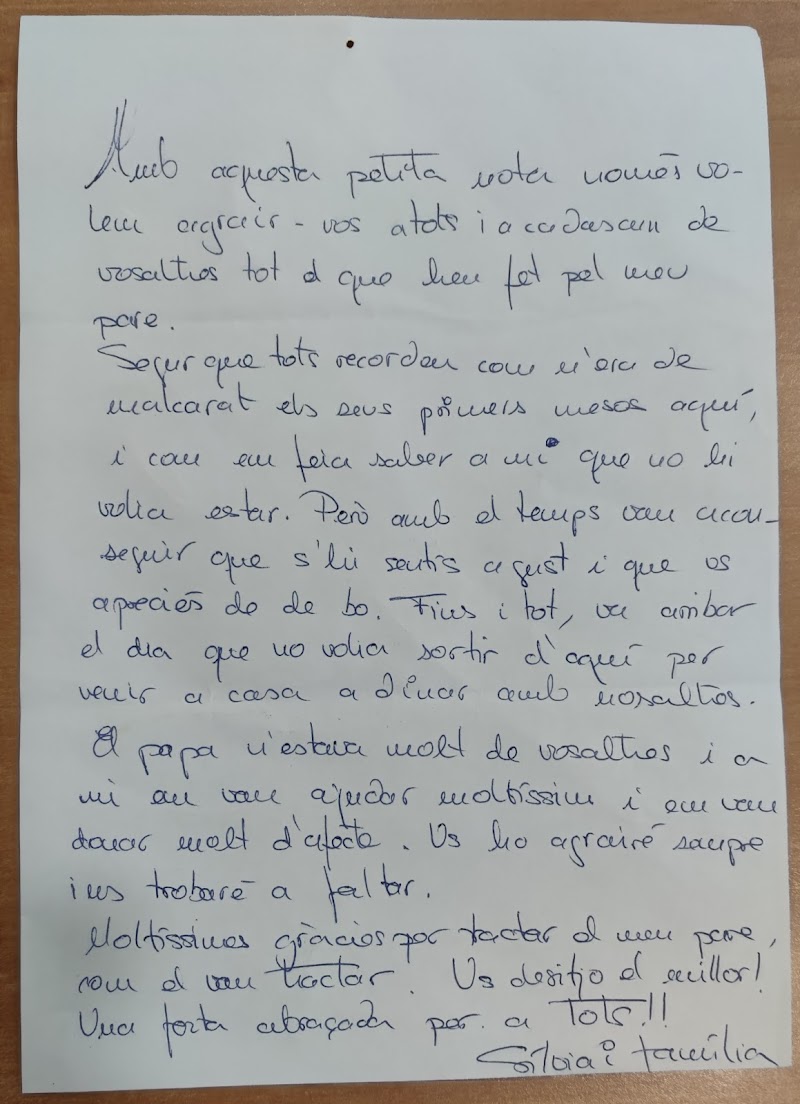 Amb aquesta petita nota només vo-
lem agrair-vos a tots i a cadascun de
vosaltres tot el que heu fet pel meu
pare.
Segur que tots recordeu com n'era de
malcarat els seus primers mesos aquí,
i com em feia saber a mi que no hi
volia estar. Però amb el temps vam acon-
seguir que s'hi sentís agust i que os
apreciés de de bo. Fins i tot, va arribar
el dia que no volia sortir d'aquí per
venir a casa a dinar amb nosaltres.
El papa n'estava molt de vosaltres i a
mi em van ajudar moltíssim i em van
donar molt d'afecte. Us ho agrairé sempre
i us trobaré a faltar.
Moltíssimes gràcies per tractar el meu pare,
com el van tractar. Us desitjo el millor!
Una forta abraçada per a TOTS!!
Sílvia i família